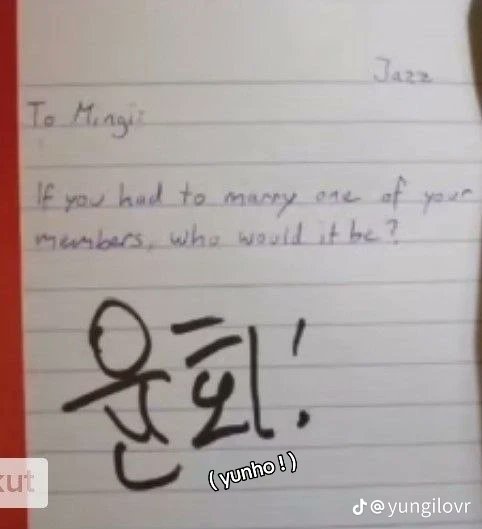 Jazz
To Mingi:
If you had to marry one of your
members, who would it be?
윤회!
(yunho!)
kut
@yungilovr